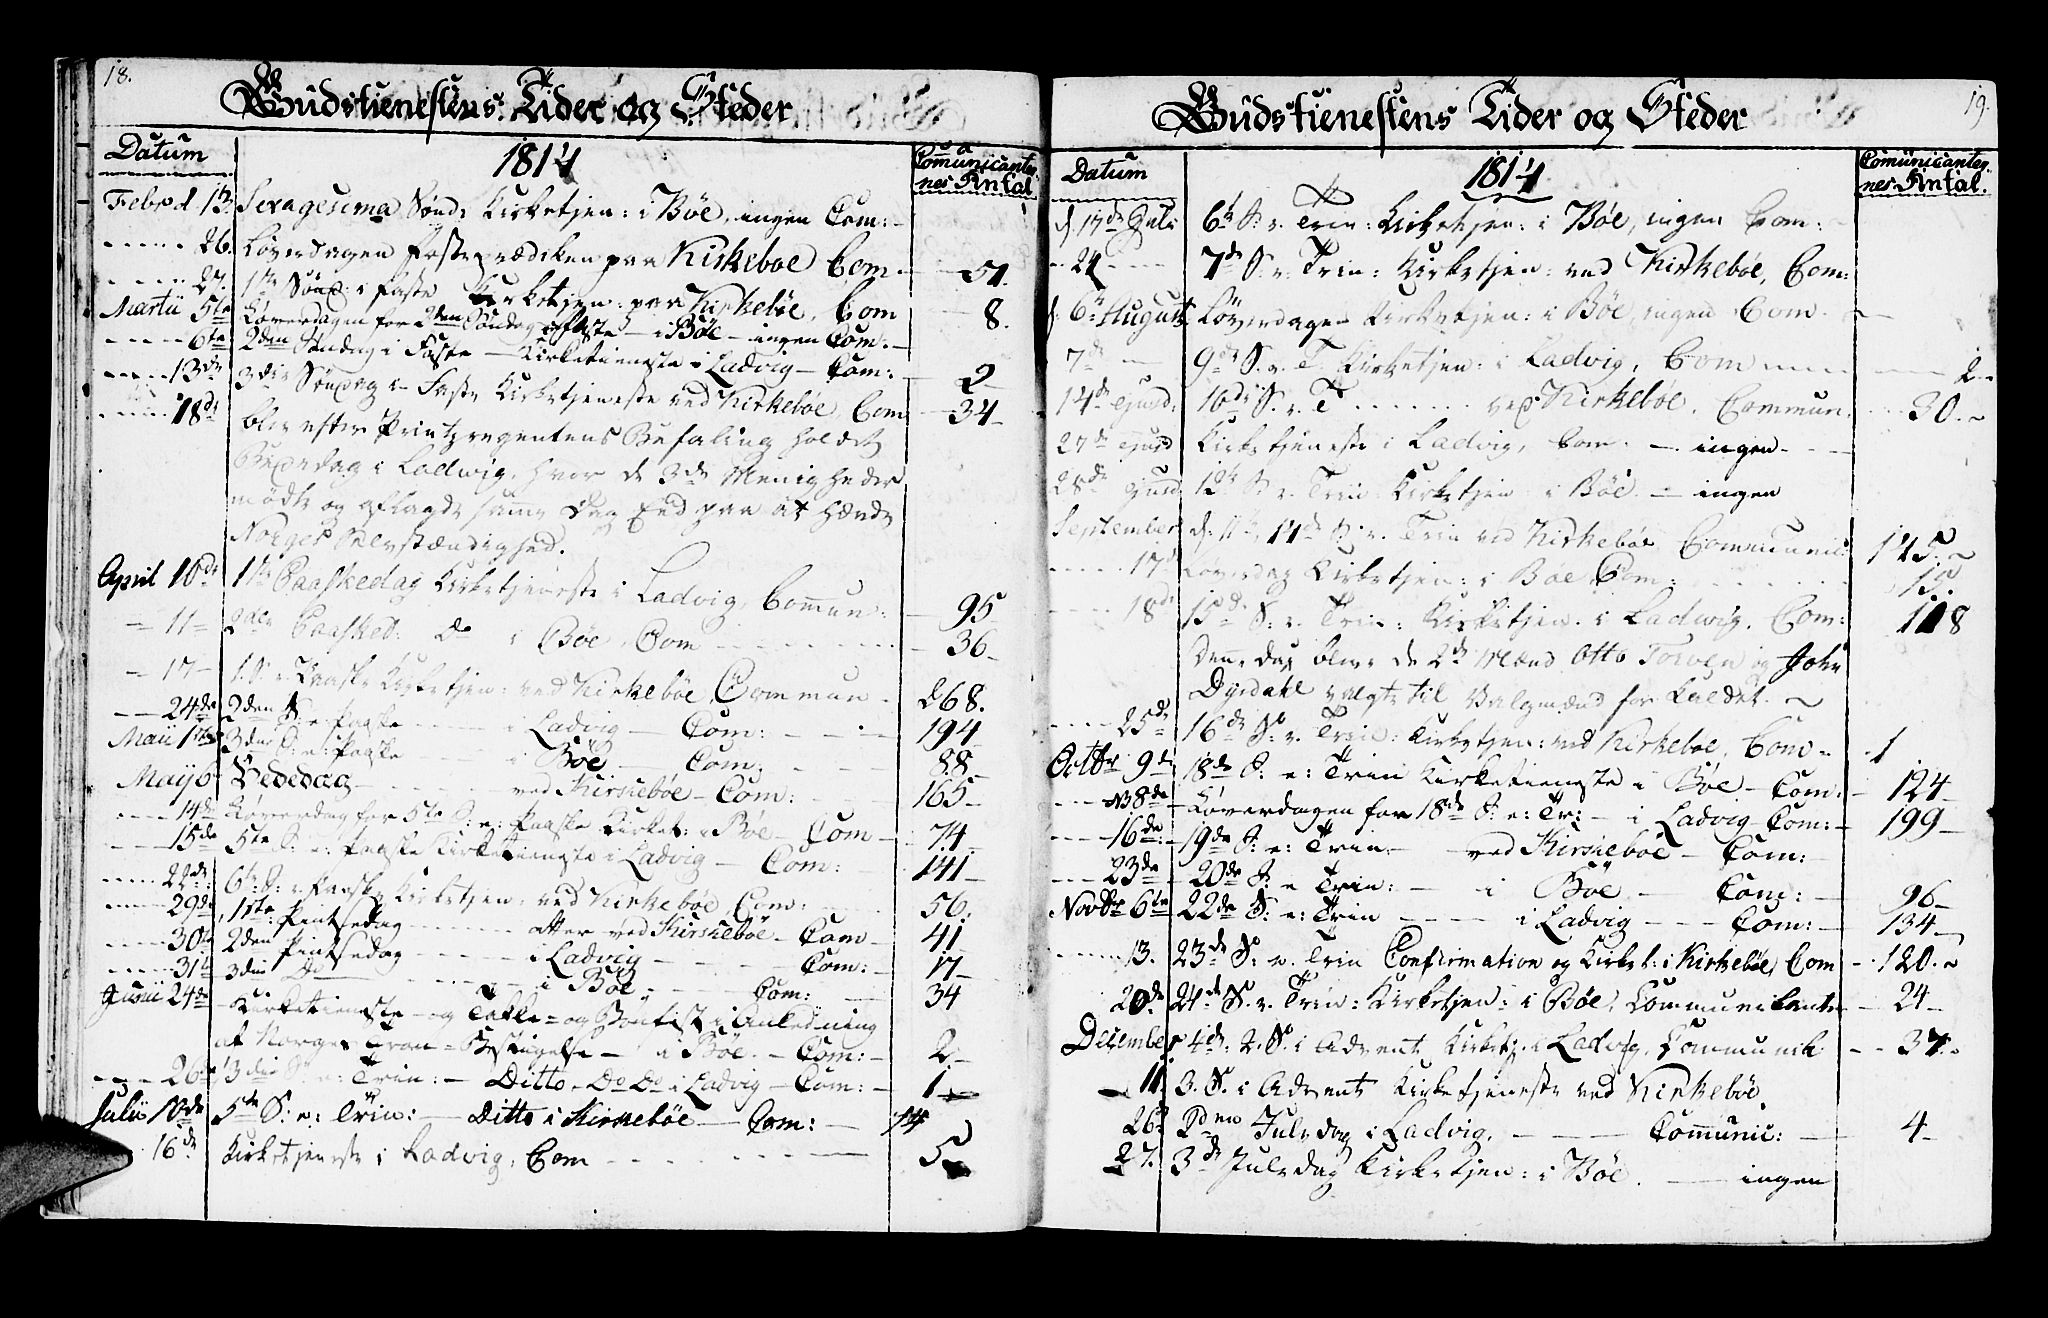 18.
Gudstienestens Tider og Steder
Datum
1814
Comunicanter
nes Antal
Febr. d. 13. Sexagesima Sönd: Kirketjen: i Böe, ingen Com:
26. Löverdagen Fasteprædiken paa Kirkeboe Com 51.
27. 1ste Sönd: i Faste Kirketjen: paa Kirkeböe, Com 8.
Martii 5te Löverdagen for 2den Söndag i Faste - i Böe - ingen Com. -
6te 2den Söndag i Faste - Kirketieneste i Ladvig - Com: 2
13de 3die Söndag i Faste Kirketjeneste ved Kirkeböe, Com 34
18de blev efter Printzregentens Befaling holdet
Bededag i Ladvig, hvor de 3de Menigheder
mödte og aflagde samme Dag Eed paa at hævde
Norges Selvstændighed.
April 10de 1ste Paaskedag Kirketjeneste i Ladvig, Commun: 95
- 11 - 2den Paasked: Do i Böe, Com 36
- 17 - 1. S. e. Paaske Kirketjen: ved Kirkeböe, Commun 268.
24de 2den S: e: Paaske i Ladvig - Com: 194
Maii 1ste 3die S: e: Paaske i Böe - Com: 88
Maij 6 Bededag ved Kirkeböe - Com: 165
14de Löverdag for 5te S: e: Paaske Kirket: i Böe - Com 74
15de 5te S: e: Paaske Kirketieneste i Ladvig - Com: 141
22de 6te S: e. Paaske Kirketjen: ved Kirkeböe Com: 56.
29de 1ste Pintsedag atter ved Kirkeböe - Com 41
30te 2den Pintsedag i Ladvig - Com: 17
31te 3die Do i Böe Com: 34
Junii 24de Kirketieneste - og Takke- og Bönfest i Anledning
af Norges Tron-Bestigelse - i Böe - Com: 2
26de 3die S: e: Trin: - Ditto - Do Do i Ladvig - Com: - 1
Julii 10de 5te S: e: Trin: - Ditto i Kirkeböe - Com: - 14
16de Kirketjeneste i Ladvig, Com 5
19.
Gudstienestens Tider og Steder
Datum
1814
Comunicanter
nes Antal.
d. 17de Juli 6te S. e. Trin: Kirketjen: i Böe, ingen Com:
24 7de S. e. Trin: Kirketjen: ved Kirkeböe, Com:
d. 6te August Löverdagen Kirketjen: i Böe, ingen Com.
7de 9de S. e. T. Kirketjen: i Ladvig, Com 2
14de ejusd: 10de S. e. T ved Kirkeböe, Commun. 30
27de ejusd Kirketjeneste i Ladvig, Com: - ingen
28de ejusd 12te S. e. Trin: Kirketjen: i Böe - ingen
September d. 11te, 14de S. e. Trin ved Kirkeböe Communic: 145.
17de Löverdag Kirketjen: i Böe Com:
18de 15de S: e. Trin: Kirketjen. i Ladvig, Com: 118
Denne dag bleve de 2de Mænd Otto Torven og John
Dyrdahl valgte til Valgmænd for Kaldet.
25de 16de S. e. Trin: Kirketjen: ved Kirkeboe, Com 1
Octbr 9de 18de S: e: Trin Kirketieneste i Böe - Com: - 124
NB 8de - Löverdagen for 18de S: e: Tr: - i Ladvig Com: - 199
16de 19de S: e: Trin: - ved Kirkeböe - Com:
23de 20de S: e Trin: - i Böe - Com: 96
Novbr 6te 22de S: e: Trin - i Ladvig - Com: 134
13. 23de S. e. Trin Confirmation og Kirket: i Kirkeböe, Com 120.
20de 24de S. e. Trin: Kirketjen: i Böe, Communicanter 24
December 4de: 2. S. i Advent Kirketj. i Ladvig, Kommunik 37.
11. 3. S. i Advent Kirketjeneste ved Kirkeböe.
26de 2den Juledag i Ladvig. - Comunic: 4
27. 3de Juledag Kirketjen: i Böe. - ingen